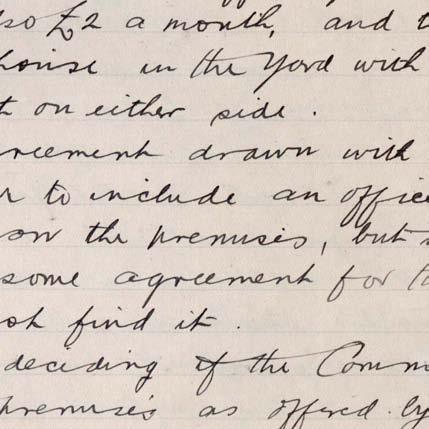 also £2 a month, and
house in the Yard with
on either side.
agreement drawn with
to include an office
on the premises, but
some agreement for
find it.
deciding of the Comm
premises as offered by